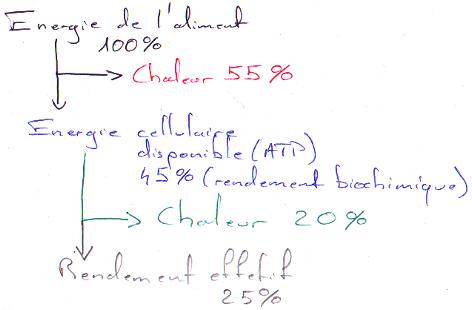 Energie de l'aliment
100%
Chaleur 55%
Energie cellulaire
disponible (ATP)
45% (rendement biochimique)
Chaleur 20%
Rendement effetif
25%